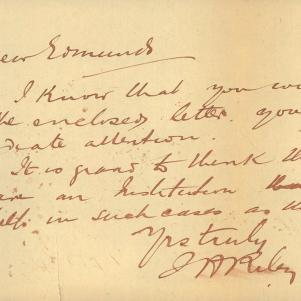 ear Edmunds
I know that you wi
he enclosed letter you
diate attention.
It is grand to think th
ave an Institution
elp in such cases as th
Yrs truly
J A Riley